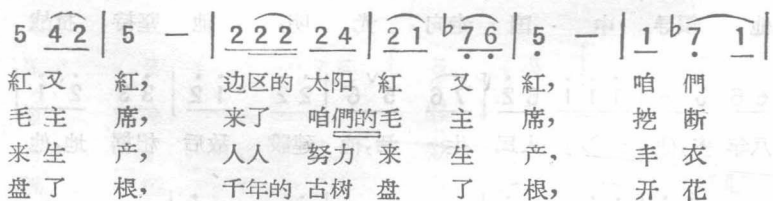 5 4 2 | 5 — | 2 2 2 2 4 | 2 1 ♭7 6 | 5 — | 1 ♭7 1 |
紅 又 紅, 边区的 太阳 紅 又 紅, 咱 們
毛 主 席, 来了 咱們的 毛 主 席, 挖 断
来 生 产, 人人 努力 来 生 产, 丰 衣
盘 了 根, 千年的 古树 盘 了 根, 开 花